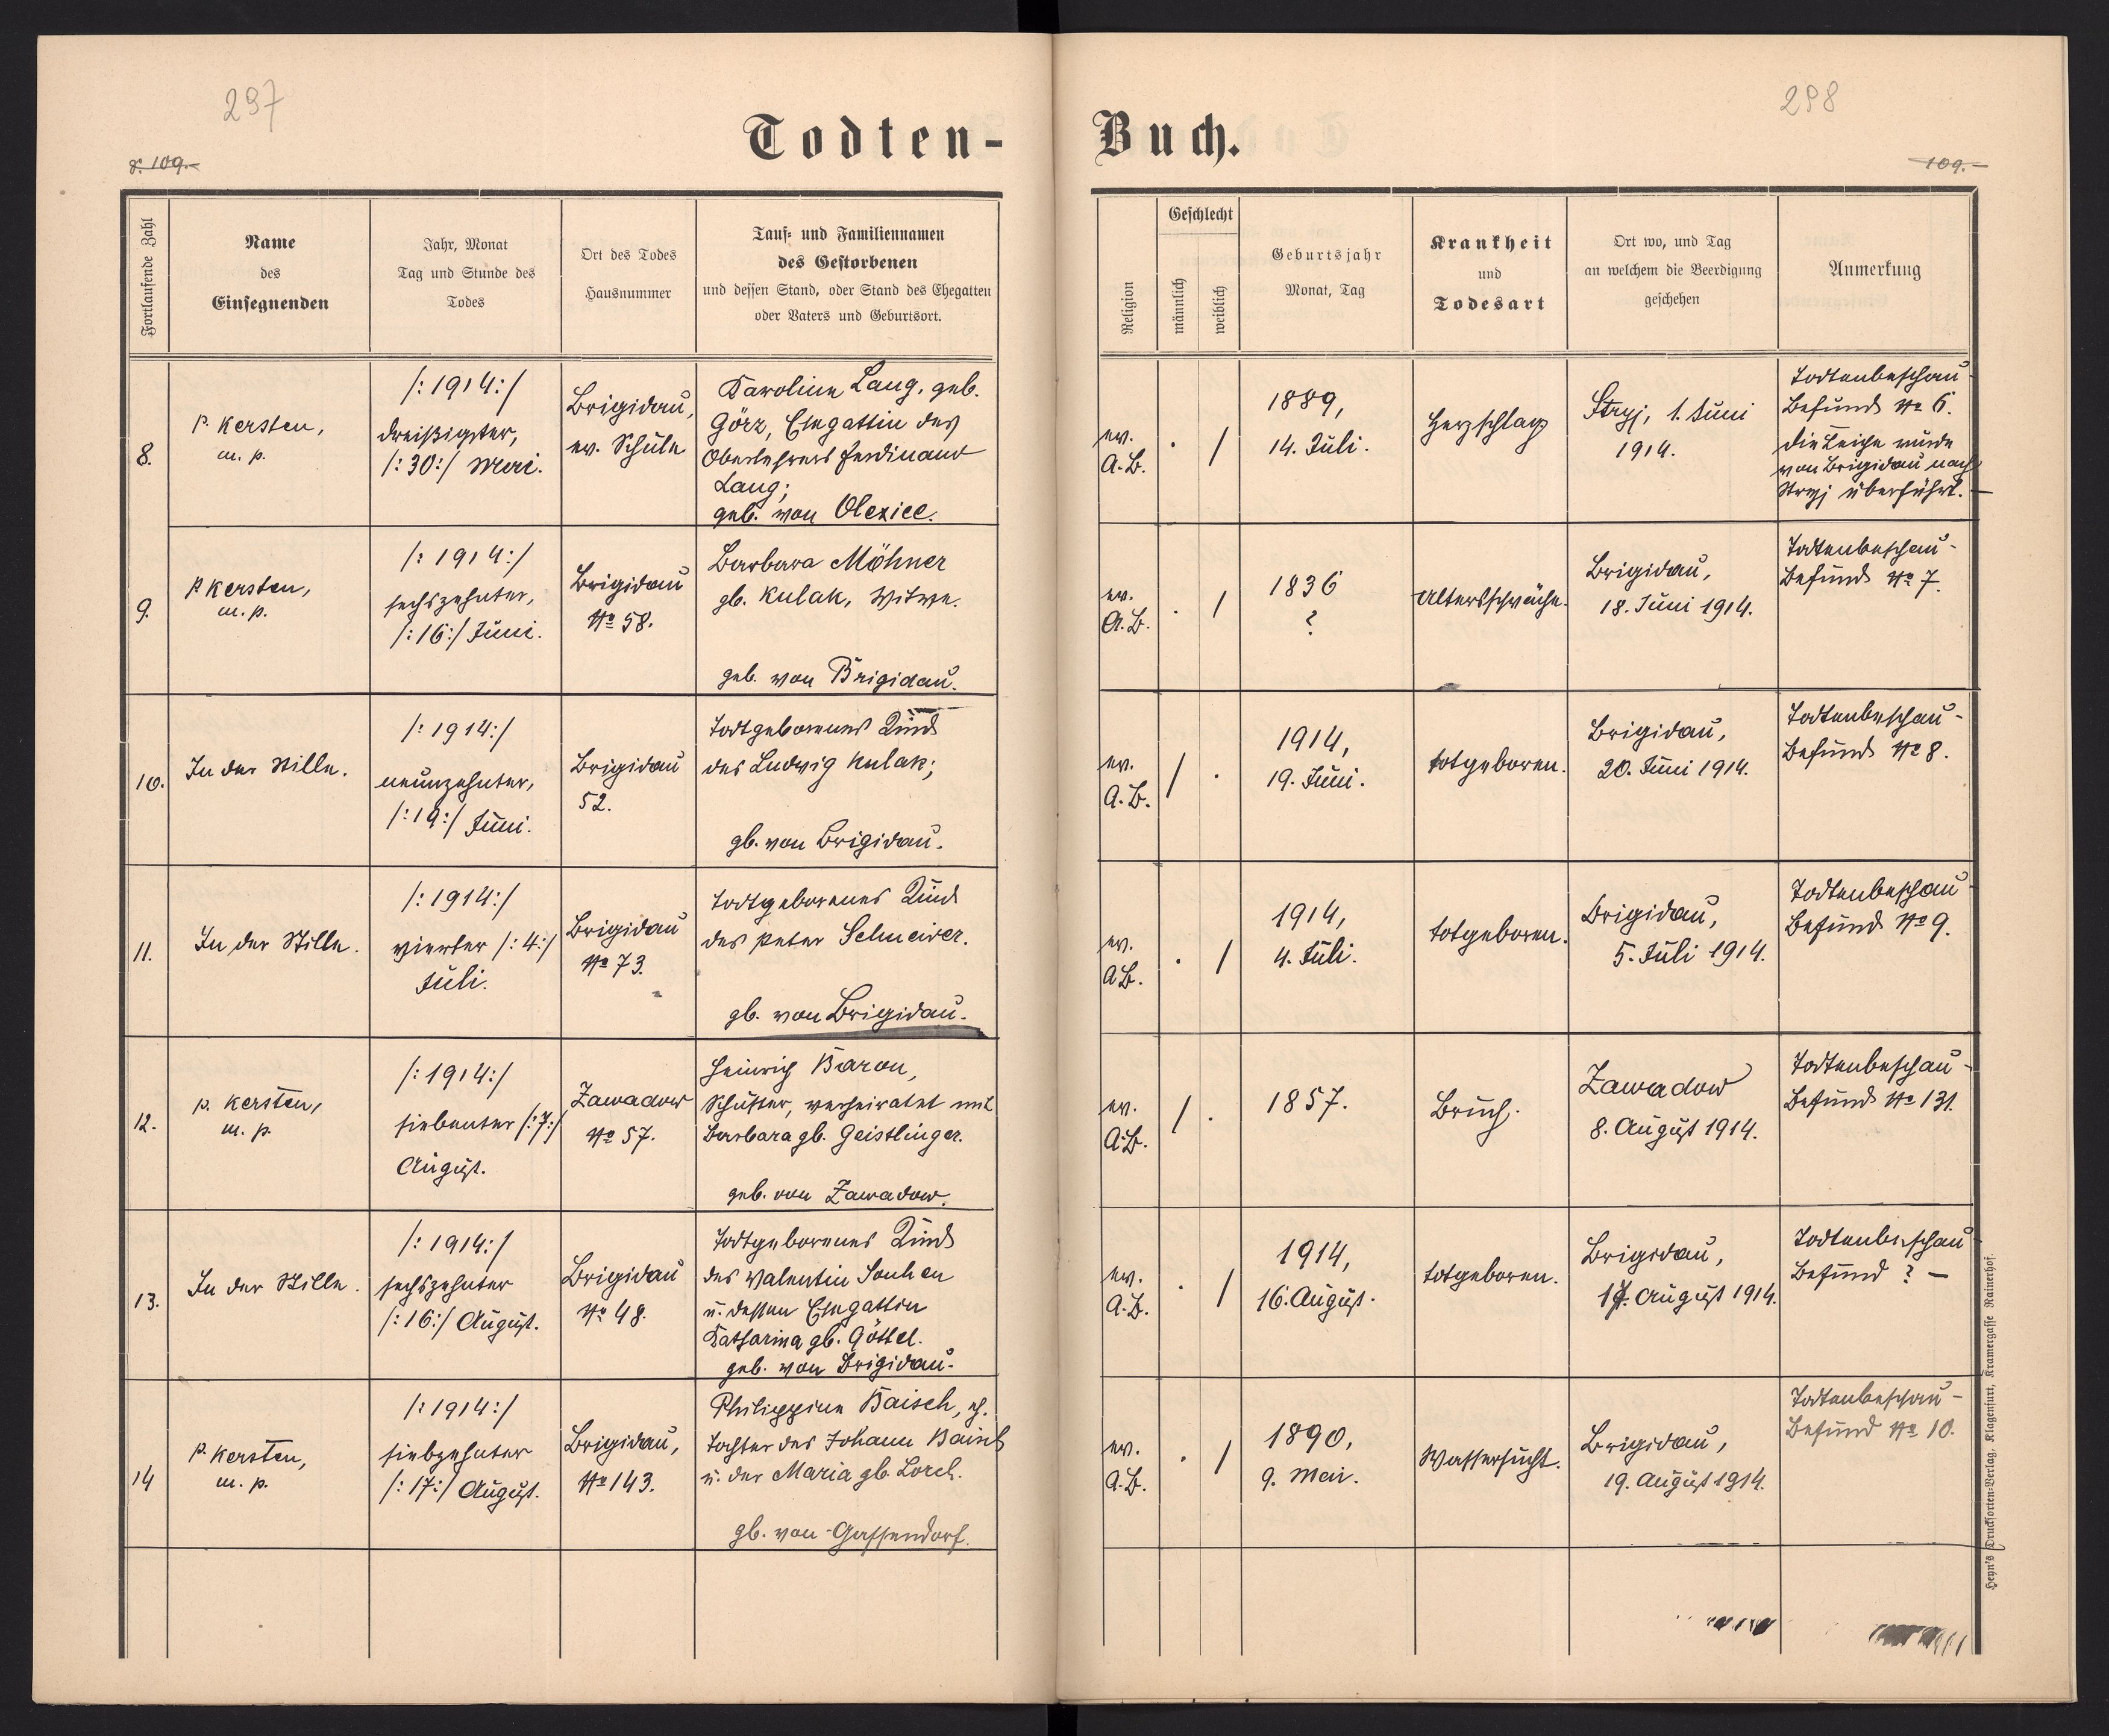 297
298
Todten-Buch.
S. 109.-
109.-
Fortlaufende Zahl
Name
des
Einsegnenden
Jahr, Monat
Tag und Stunde des
Todes
Ort des Todes
Hausnummer
Tauf- und Familiennamen
des Gestorbenen
und dessen Stand, oder Stand des Ehegatten
oder Vaters und Geburtsort.
Religion
Geschlecht
männlich
weiblich
Geburtsjahr
Monat, Tag
Krankheit
und
Todesart
Ort wo, und Tag
an welchem die Beerdigung
geschehen
Anmerkung
8.
P. Kersten,
m. p.
/:1914:/
dreißigster,
/:30:/ Mai.
Brigidau,
ev. Schule
Karoline Lang, geb.
Görz, Ehegattin des
Oberlehrers Ferdinand
Lang;
geb. von Oleziec.
ev.
A.B.
. /
1889,
14. Juli.
Herzschlag
Stryj, 1. Juni
1914.
Todtenbeschau-
Befund No 6.
Die Leiche wurde
von Brigidau nach
Stryj überführt.-
9.
P Kersten,
m. p.
/:1914:/
sechszehnter,
/:16:/ Juni.
Brigidau
No 58.
Barbara Möhner
gb. Kulak, Witwe.
geb. von Brigidau.
ev.
A.B.
. /
1836
?
Altersschwäche.
Brigidau,
18. Juni 1914.
Todtenbeschau-
Befund No 7.
10.
In der Stille.
/:1914:/
neunzehnter,
/:19:/ Juni.
Brigidau
52.
Todtgeborenes Kind
des Ludwig Kulak;
gb. von Brigidau.
ev.
A.B.
/ .
1914,
19. Juni.
totgeboren.
Brigidau,
20. Juni 1914.
Todtenbeschau-
Befund No 8.
11.
In der Stille.
/:1914:/
vierter /:4:/
Juli.
Brigidau
No 73.
Todtgeborenes Kind
des Peter Schneider.
gb. von Brigidau.
ev.
A.B.
. /
1914,
4. Juli.
totgeboren.
Brigidau,
5. Juli 1914.
Todtenbeschau-
Befund No 9.
12.
P. Kersten,
m. p.
/:1914:/
siebenter /:7:/
August.
Zawadow
No 57.
Heinrich Baron,
Schuster, verheiratet mit
Barbara gb. Geistlinger.
geb. von Zawadow.
ev.
A.B.
/ .
1857.
Bruch.
Zawadow
8. August 1914.
Todtenbeschau-
Befund No 131.
13.
In der Stille.
/:1914:/
sechszehnter
/:16:/ August.
Brigidau
No 48.
Todtgeborenes Kind
des Valentin
u. dessen Ehegattin
Katharina gb. Göttel.
geb. von Brigidau.
ev.
A.B.
. /
1914,
16. August.
totgeboren.
Brigidau,
17. August 1914.
Todtenbeschau
Befund ? -
14
P. Kersten,
m. p.
/:1914:/
siebzehnter
/:17:/ August.
Brigidau,
No 143.
Philippine Baisch, eh.
Tochter des Johann Baisch
u. der Maria gb. Lorch.
gb. von Gassendorf.
ev.
A.B.
. /
1890,
9. Mai.
Wassersucht.
Brigidau,
19. August 1914.
Todtenbeschau-
Befund No 10.
Heyn's Drucksorten-Verlag, Klagenfurt, Kramergasse Rainerhof.